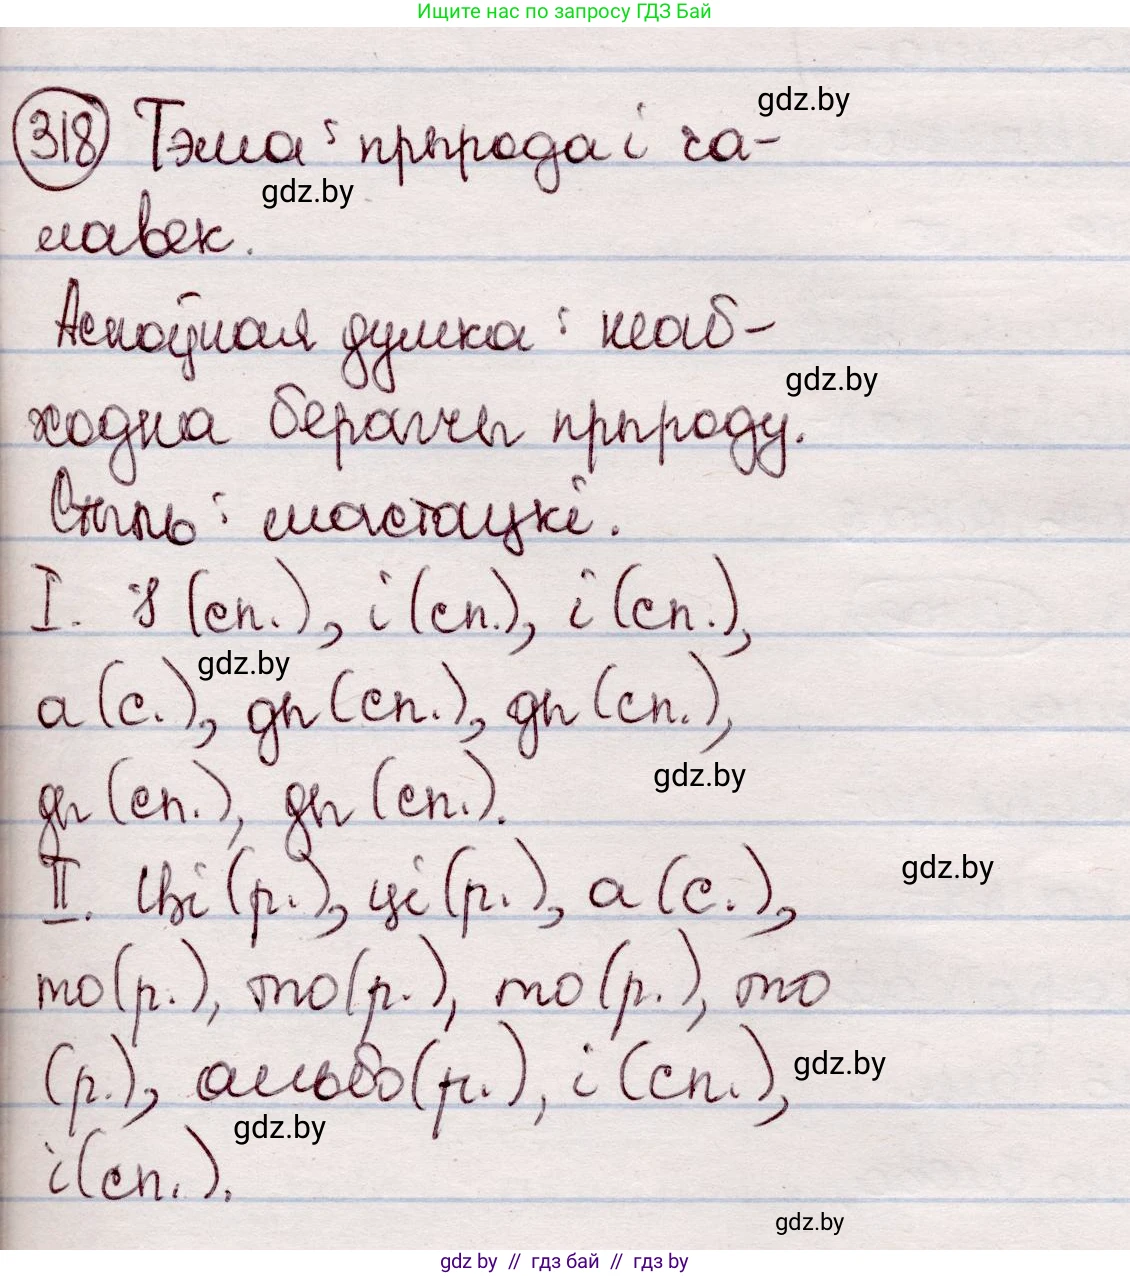 Ищите нас по запросу ГДЗ Бай
gdz.by
318 Тэма: прырода і ча-
gdz.by
лавек.
Асноўная думка: неаб-
gdz.by
ходна берагчы прыроду.
Стыль: мастацкі.
I. І (сп.), і (сп.), і (сп.),
gdz.by
а (с.), ды (сп.), ды (сп.),
gdz.by
ды (сп.), ды (сп.).
gdz.by
II. Ці (р.), ці (р.), а (с.),
то (р.), то (р.), то (р.), то
gdz.by
(р.), альбо (р.), і (сп.),
gdz.by
і (сп.).
gdz.by
gdz by // гдз бай // гдз by